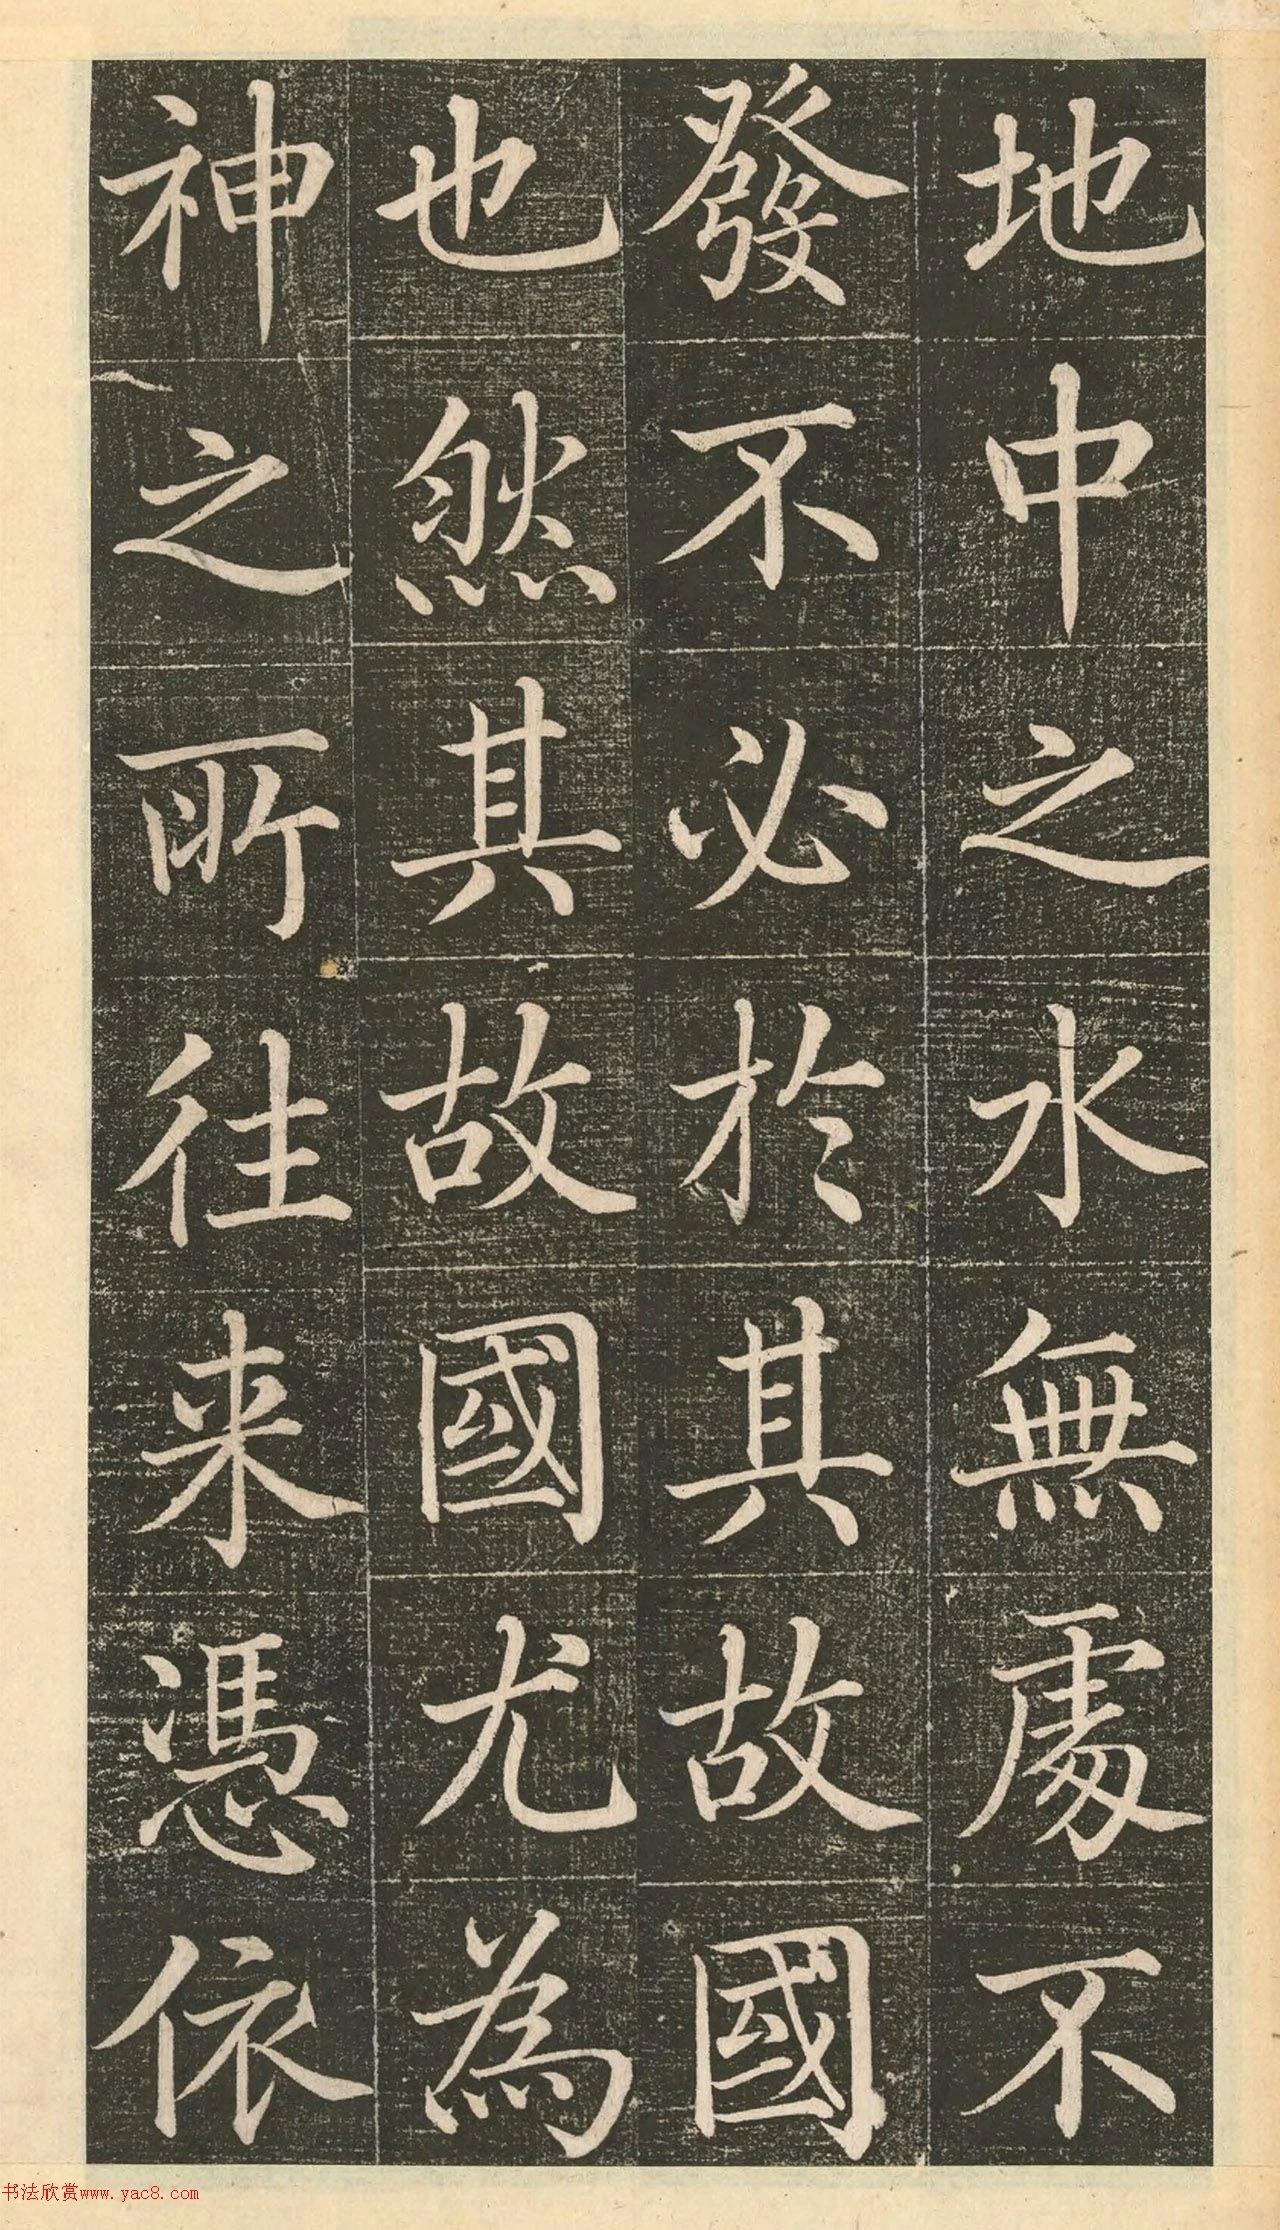 地中之水無處不
發不必於其故國
也然其故國尤為
神之所往来憑依
书法欣赏www.yac8.com